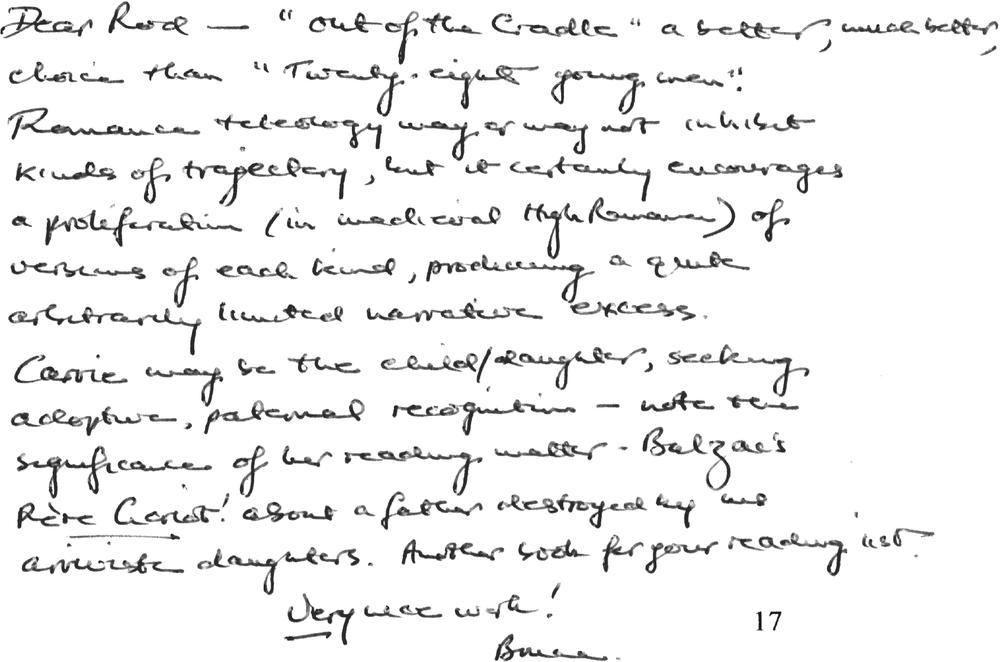 Dear Rod — "Out of the Cradle" a better, much better,
choice than "Twenty-eight young men"!
Romance teleology may or may not inhibit
kinds of trajectory, but it certainly encourages
a proliferation (in mediaeval High Romance) of
versions of each kind, producing a quite
arbitrarily limited narrative excess.
Carrie may be the child/daughter, seeking
adoptive, paternal recognition – note the
significance of her reading matter - Balzac's
Père Goriot! about a father destroyed by his
arriviste daughters. Another book for your reading list.
Very nice work!
17